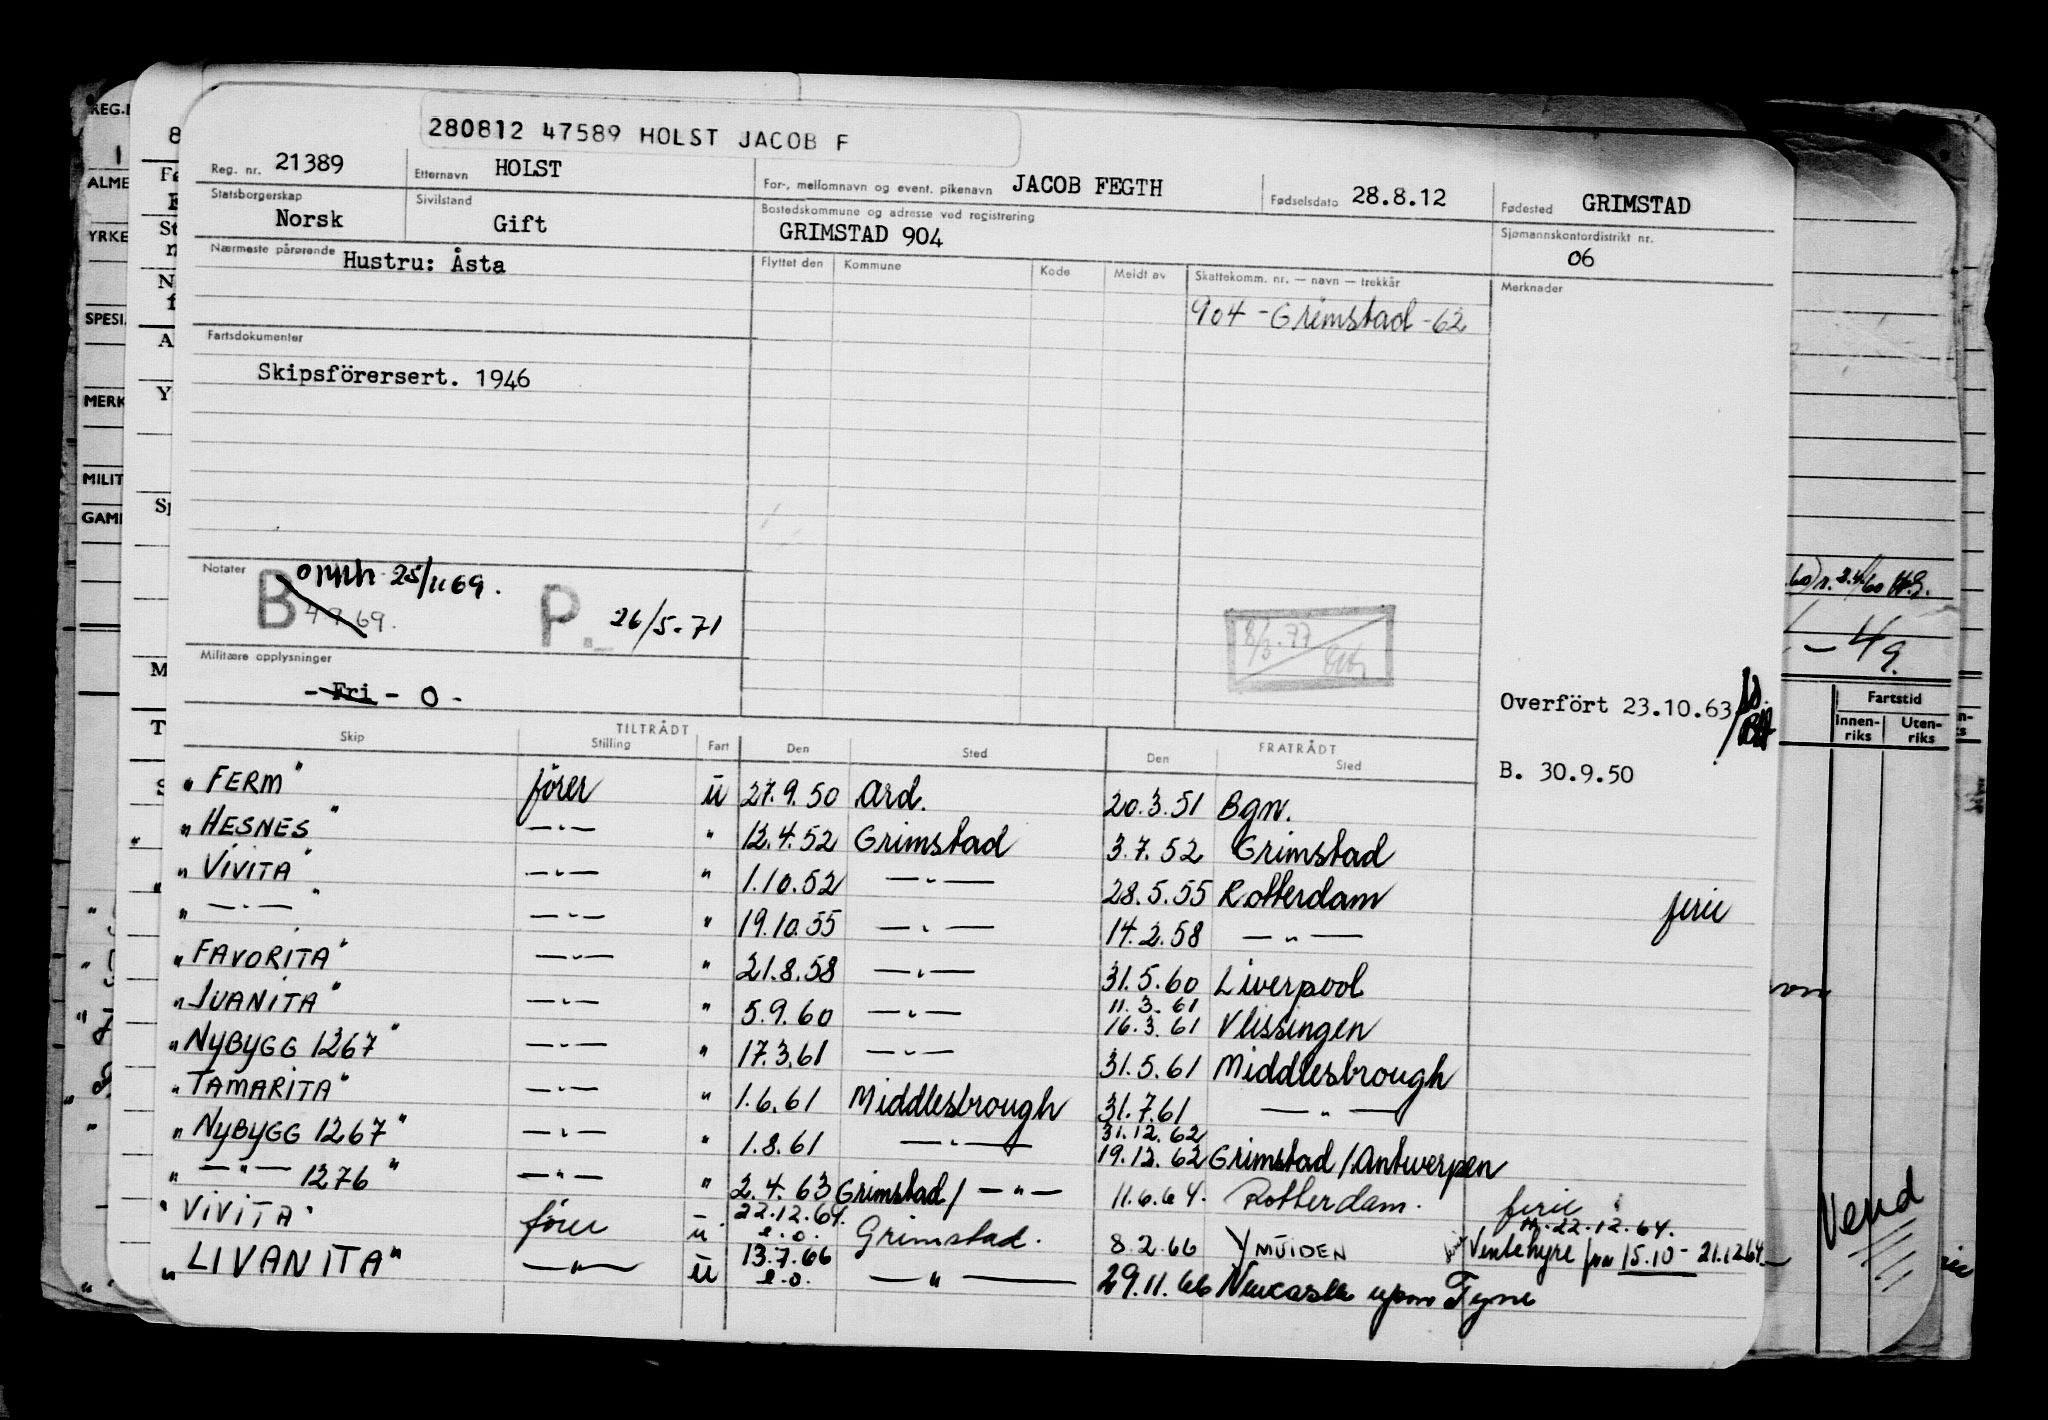 280812 47589 HOLST JACOB F
Reg. nr. 21389 Etternavn HOLST For-, mellomnavn og event. pikenavn JACOB FEGTH Fødselsdato 28.8.12 Fødested GRIMSTAD
Statsborgerskap Norsk Sivilstand Gift Bostedskommune og adresse ved registrering GRIMSTAD 904 Sjømannskontordistrikt nr. 06
Nærmeste pårørende Hustru: Åsta Flyttet den Kommune Kode Meldt av Skattekomm. nr. — navn — trekkår Merknader
904 - Grimstad - 62
Fartsdokumenter
Skipsförersert. 1946
Notater
B 25/11 69.
4 9 69.
P. 26/5-71
8/3.77
Militære opplysninger
- Fri - 0 -
Overfört 23.10.63
B. 30.9.50
TILTRÅDT FRATRÅDT
Skip Stilling Fart Den Sted Den Sted
"FERM" förer u 27.9.50 Ard. 20.3.51 Bgn.
"HESNES" —"— " 12.4.52 Grimstad 3.7.52 Grimstad
"VIVITA" —"— " 1.10.52 —"— 28.5.55 Rotterdam ferie
"—"—" —"— " 19.10.55 —"— 14.2.58 —"—
"FAVORITA" —"— " 21.8.58 —"— 31.5.60 Liverpool
11.3.61
"JUANITA" —"— " 5.9.60 —"— 16.3.61 Vlissingen
"NYBYGG 1267" —"— " 17.3.61 —"— 31.5.61 Middlesbrough
"TAMARITA" —"— " 1.6.61 Middlesbrough 31.7.61 —"—
31.12.62
"NYBYGG 1267" —"— " 1.8.61 —"— 19.12.62 Grimstad/Antwerpen
"—"— 1276" —"— " 2.4.63 Grimstad/—"— 11.6.64. Rotterdam. ferie
22.12.64. 22.12.64.
"VIVITA" förer u e.o. Grimstad. 8.2.66 YMUIDEN Ventehyre fra 15.10 - 21.12.64
13.7.66
"LIVANITA" —"— u e.o. —"— 29.11.66 Newcastle upon Tyne
Vend
Fartstid
Innen-riks Uten-riks
REG.
ALME
YRKE
SPESI
MERK
MILIT
GAM
- 49.